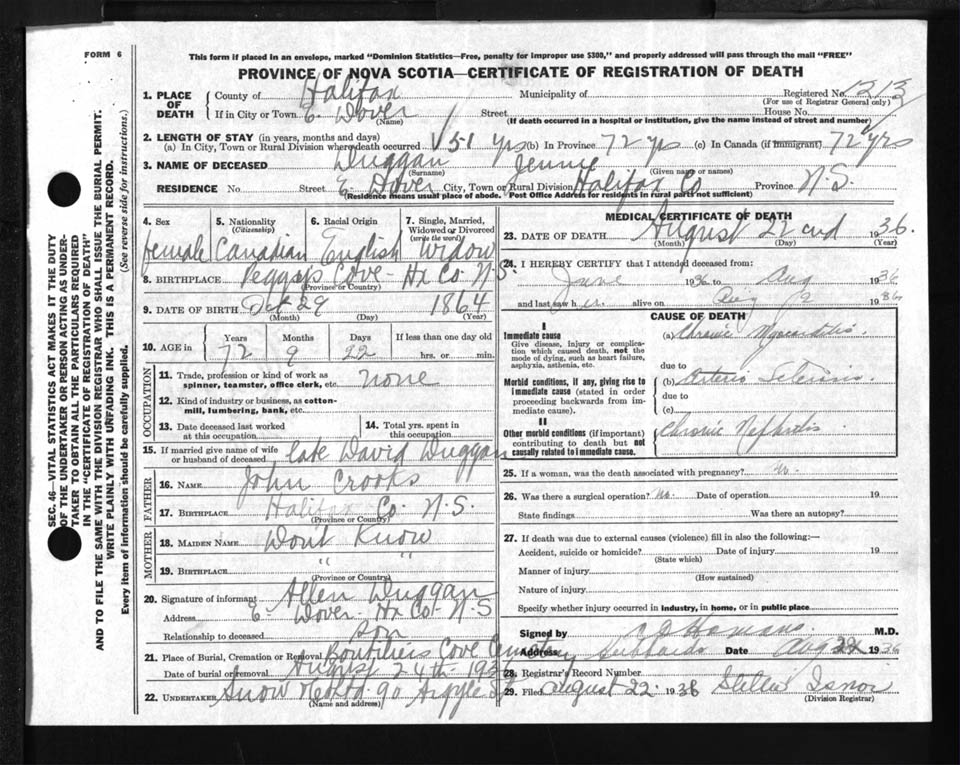 FORM 6
This form if placed in an envelope, marked "Dominion Statistics—Free, penalty for improper use $300," and properly addressed will pass through the mail "FREE"
PROVINCE OF NOVA SCOTIA—CERTIFICATE OF REGISTRATION OF DEATH
SEC. 46—VITAL STATISTICS ACT MAKES IT THE DUTY
OF THE UNDERTAKER OR PERSON ACTING AS UNDER-
TAKER TO OBTAIN ALL THE PARTICULARS REQUIRED
IN THE "CERTIFICATE OF REGISTRATION OF DEATH"
AND TO FILE THE SAME WITH THE DIVISION REGISTRAR WHO SHALL ISSUE THE BURIAL PERMIT.
WRITE PLAINLY WITH UNFADING INK. THIS IS A PERMANENT RECORD.
Every item of information should be carefully supplied. (See reverse side for instructions.)
1. PLACE OF DEATH County of Halifax Municipality of Registered No. 1213
(For use of Registrar General only)
If in City or Town E. Dover (Name) Street House No.
(If death occurred in a hospital or institution, give the name instead of street and number)
2. LENGTH OF STAY (in years, months and days)
(a) In City, Town or Rural Division where death occurred 51 yrs (b) In Province 72 yrs (c) In Canada (if immigrant) 72 yrs
3. NAME OF DECEASED Duggan Jennie
(Surname) (Given name or names)
RESIDENCE No. Street E. Dover City, Town or Rural Division Halifax Co Province N.S.
(Residence means usual place of abode. Post Office Address for residents in rural parts not sufficient)
4. Sex 5. Nationality (Citizenship) 6. Racial Origin 7. Single, Married, Widowed or Divorced (write the word)
female Canadian English Widow
8. BIRTHPLACE Peggys Cove - Hx Co. N.S.
(Province or Country)
9. DATE OF BIRTH Oct 29 1864
(Month) (Day) (Year)
10. AGE in Years Months Days If less than one day old
72 9 22 hrs. or min.
OCCUPATION
11. Trade, profession or kind of work as spinner, teamster, office clerk, etc. none
12. Kind of industry or business, as cotton-mill, lumbering, bank, etc.
13. Date deceased last worked at this occupation
14. Total yrs. spent in this occupation
15. If married give name of wife or husband of deceased late David Duggan
FATHER
16. NAME John Crooks
17. BIRTHPLACE Halifax Co. N.S.
(Province or Country)
MOTHER
18. MAIDEN NAME Dont Know
19. BIRTHPLACE " "
(Province or Country)
20. Signature of informant Allen Duggan
Address E. Dover Hx Co. N.S
Relationship to deceased son
21. Place of Burial, Cremation or Removal Boutiliers Cove Cemetery
Date of burial or removal August 24th 1936
22. UNDERTAKER Snow 90 Argyle St
(Name and address)
MEDICAL CERTIFICATE OF DEATH
23. DATE OF DEATH August 22nd 1936.
(Month) (Day) (Year)
24. I HEREBY CERTIFY that I attended deceased from:
June 1936 to Aug 1936
and last saw h er alive on Aug 1936
CAUSE OF DEATH
I
Immediate cause
Give disease, injury or complication which caused death, not the mode of dying, such as heart failure, asphyxia, asthenia, etc.
(a) Chronic Myocarditis
due to
Morbid conditions, if any, giving rise to immediate cause (stated in order proceeding backwards from immediate cause).
(b) Arterio Sclerosis.
due to
(c)
II
Other morbid conditions (if important) contributing to death but not causally related to immediate cause.
Chronic Nephritis
25. If a woman, was the death associated with pregnancy? No.
26. Was there a surgical operation? No. Date of operation 19
State findings Was there an autopsy?
27. If death was due to external causes (violence) fill in also the following:—
Accident, suicide or homicide? Date of injury 19
(State which)
Manner of injury
(How sustained)
Nature of injury
Specify whether injury occurred in industry, in home, or in public place
Signed by Homans M.D.
Address Hubbards Date Aug 22 1936
28. Registrar's Record No.
29. Filed August 22 1936 Isnor
(Division Registrar)